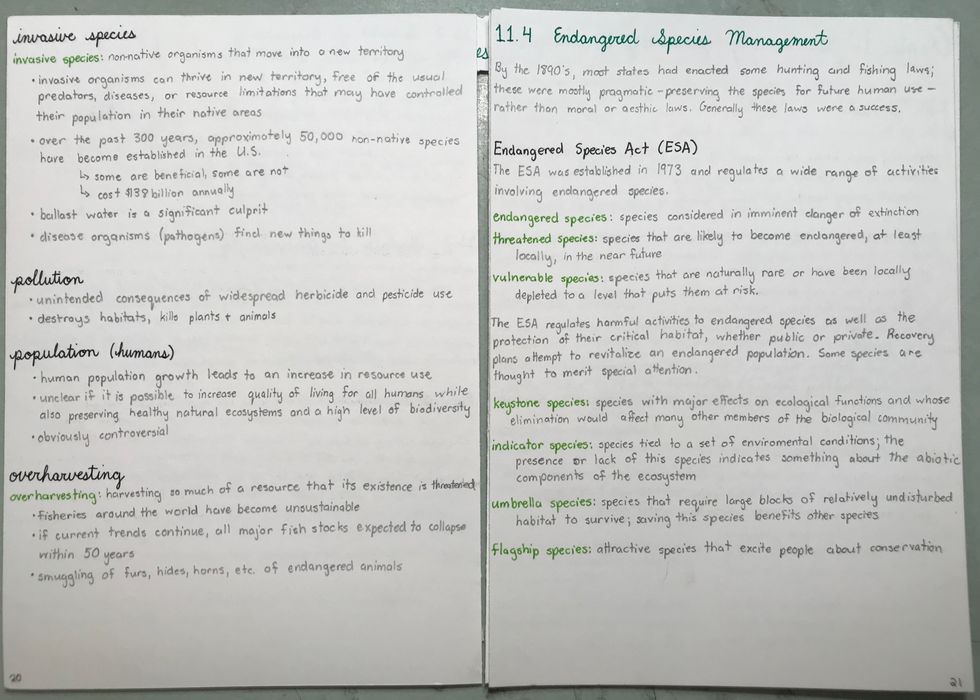 invasive species
invasive species: non-native organisms that move into a new territory
• invasive organisms can thrive in new territory, free of the usual
predators, diseases, or resource limitations that may have controlled
their population in their native areas
• over the past 300 years, approximately 50,000 non-native species
have become established in the U.S.
↳ some are beneficial, some are not
↳ cost $138 billion annually
• ballast water is a significant culprit
• disease organisms (pathogens) find new things to kill
pollution
• unintended consequences of widespread herbicide and pesticide use
• destroys habitats, kills plants + animals
population (humans)
• human population growth leads to an increase in resource use
• unclear if it is possible to increase quality of living for all humans while
also preserving healthy natural ecosystems and a high level of biodiversity
• obviously controversial
overharvesting
overharvesting: harvesting so much of a resource that its existence is threatened
• fisheries around the world have become unsustainable
• if current trends continue, all major fish stocks expected to collapse
within 50 years
• smuggling of furs, hides, horns, etc. of endangered animals
20
es
11.4 Endangered Species Management
By the 1890's, most states had enacted some hunting and fishing laws;
these were mostly pragmatic - preserving the species for future human use -
rather than moral or aesthic laws. Generally these laws were a success.
Endangered Species Act (ESA)
The ESA was established in 1973 and regulates a wide range of activities
involving endangered species.
endangered species: species considered in imminent danger of extinction
threatened species: species that are likely to become endangered, at least
locally, in the near future
vulnerable species: species that are naturally rare or have been locally
depleted to a level that puts them at risk.
The ESA regulates harmful activities to endangered species as well as the
protection of their critical habitat, whether public or private. Recovery
plans attempt to revitalize an endangered population. Some species are
thought to merit special attention.
keystone species: species with major effects on ecological functions and whose
elimination would affect many other members of the biological community
indicator species: species tied to a set of enviromental conditions; the
presence or lack of this species indicates something about the abiotic
components of the ecosystem
umbrella species: species that require large blocks of relatively undisturbed
habitat to survive; saving this species benefits other species
flagship species: attractive species that excite people about conservation
21